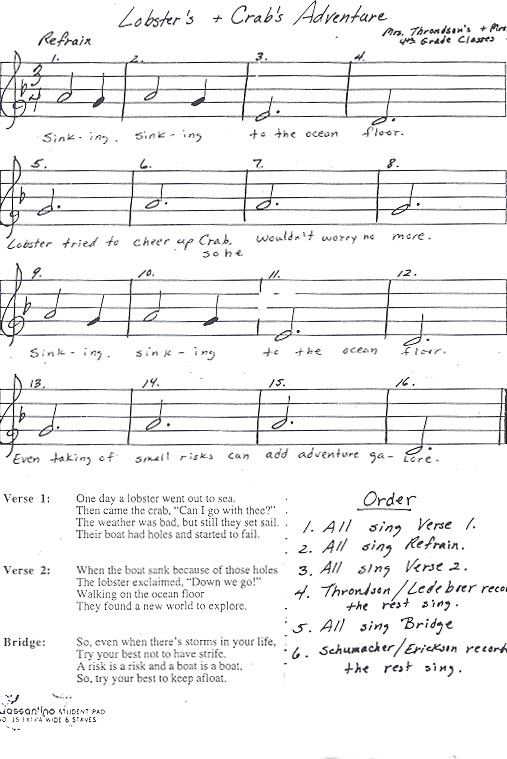 Lobster's + Crab's Adventure
Mrs. Throndson's + Mrs
4th Grade Classes
Refrain
1. 2. 3. 4.
3
4
Sink-ing, sink-ing to the ocean floor.
5. 6. 7. 8.
Lobster tried to cheer up Crab, wouldn't worry no more.
so he
9. 10. 11. 12.
Sink-ing, sink-ing to the ocean floor.
13. 14. 15. 16.
Even taking of small risks can add adventure ga-lore.
Verse 1: One day a lobster went out to sea.
Then came the crab, "Can I go with thee?"
The weather was bad, but still they set sail.
Their boat had holes and started to fail.
Verse 2: When the boat sank because of those holes
The lobster exclaimed, "Down we go!"
Walking on the ocean floor
They found a new world to explore.
Bridge: So, even when there's storms in your life,
Try your best not to have strife.
A risk is a risk and a boat is a boat,
So, try your best to keep afloat.
Order
1. All sing Verse 1.
2. All sing Refrain.
3. All sing Verse 2.
4. Throndson/Ledebeer reco
the rest sing.
5. All sing Bridge
6. Schumacher/Erickson record
the rest sing.
STUDENT PAD
EXTRA WIDE 6 STAVES